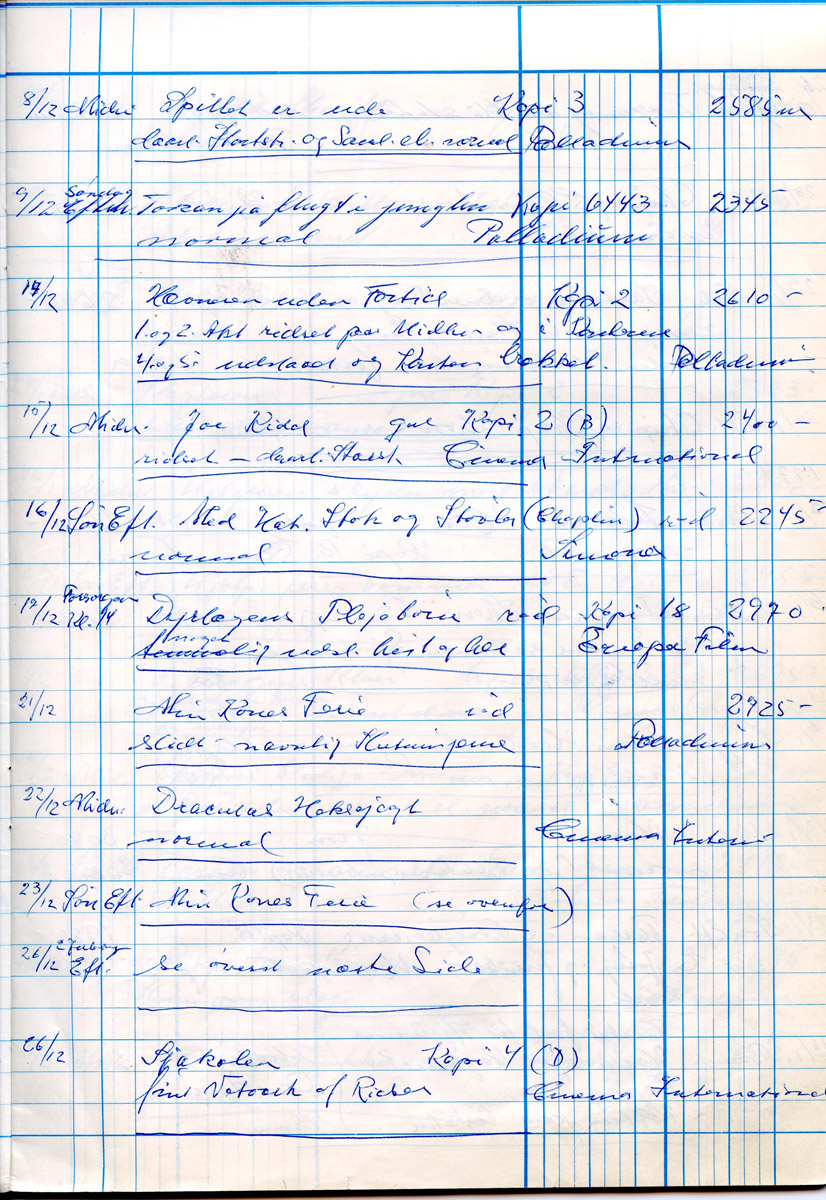 8/12 Midn. Spillet er ude Kopi 3 2585 m
daarl. Startstr. og Saml. el. normal Palladium
9/12 Søndag Efterm. Tarzan på flugt i junglen Kopi 6443 2345
normal Palladium
14/12 Hævneren uden Fortid Kopi 2 2610 -
1. og 2. Akt ridset paa Midten og i
4. og 5. og Kanten Palladium
15/12 Midn. Joe Kidd gul Kopi 2 (B) 2400 -
ridset - daarl. Cinema International
16/12 Søn Eft. Med Hat, Stok og Støvler (Chaplin) rød 2245 -
normal
17/12 Kl. 14 Dyrlægens Plejebørn rød Kopi 18 2970
noget Europa Film
21/12 Min Kones Ferie rød 2925 -
slidt - navnlig Palladium
22/12 Midn. Draculas Heksejagt
normal Cinema Intern
23/12 Søn Eft. Min Kones Ferie (se ovenfor)
26/12 2 Juledag Eft. se øverst næste Side
26/12 Sjakalen Kopi 4 (D)
fint af Ridser Cinema International